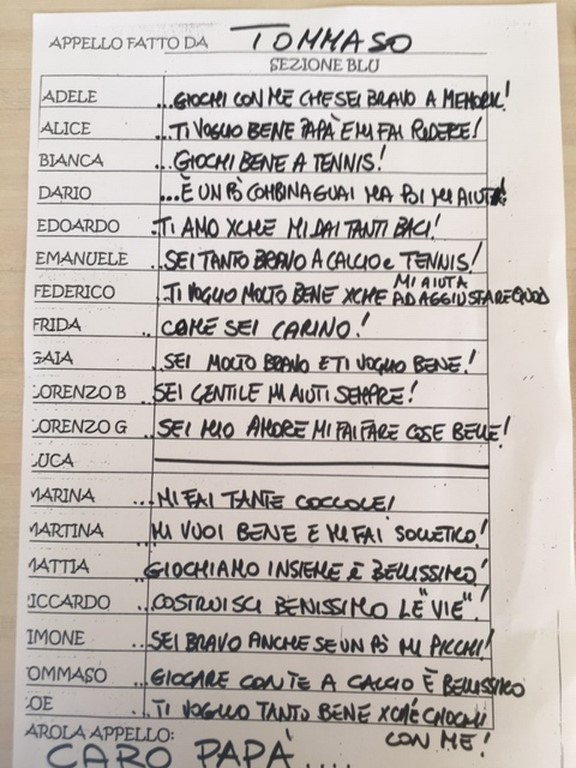 APPELLO FATTO DA TOMMASO
SEZIONE BLU
ADELE ...GIOCHI CON ME CHE SEI BRAVO A MEMORY!
ALICE ...TI VOGLIO BENE PAPÀ E MI FAI RIDERE!
BIANCA ...GIOCHI BENE A TENNIS!
DARIO ...È UN PÒ COMBINAGUAI MA POI MI AIUTA!
EDOARDO .TI AMO XCHE MI DAI TANTI BACI!
EMANUELE ..SEI TANTO BRAVO A CALCIO e TENNIS!
MI AIUTA
FEDERICO .TI VOGLIO MOLTO BENE XCHE AD AGGIUSTARE
FRIDA .. COME SEI CARINO!
GAIA .. SEI MOLTO BRAVO E TI VOGLIO BENE!
LORENZO B ..SEI GENTILE MI AIUTI SEMPRE!
LORENZO G ..SEI MIO AMORE MI FAI FARE COSE BELLE!
LUCA
MARINA ...MI FAI TANTE COCCOLE!
MARTINA ..MI VUOI BENE E MI FAI SOLLETICO!
MATTIA GIOCHIAMO INSIEME È BELLISSIMO!
RICCARDO ...COSTRUISCI BENISSIMO LE "VIE".
SIMONE ...SEI BRAVO ANCHE SE UN PÒ MI PICCHI!
TOMMASO ..GIOCARE CON TE A CALCIO È BELLISSIMO
ZOE .. TI VOGLIO TANTO BENE XCHÉ GIOCHI
CON ME!
PAROLA APPELLO:
CARO PAPÀ ....